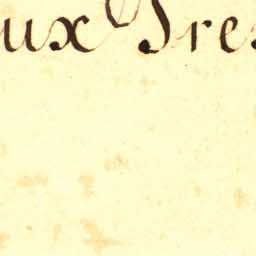 ux Tres